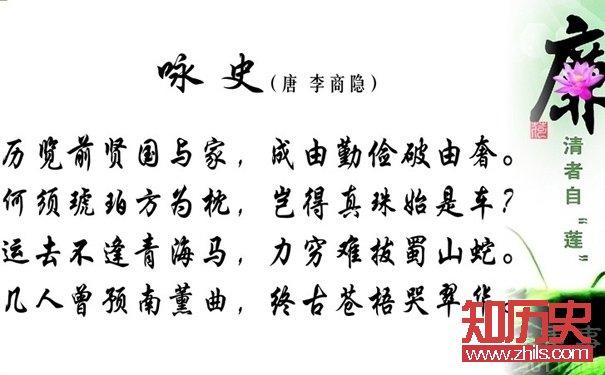 咏史(唐 李商隐)
历览前贤国与家，成由勤俭破由奢。
何须琥珀方为枕，岂得真珠始是车?
运去不逢青海马，力穷难拔蜀山蛇。
几人曾预南薰曲，终古苍梧哭翠华。
廉
清者自“莲”
知历史
www.zhils.com